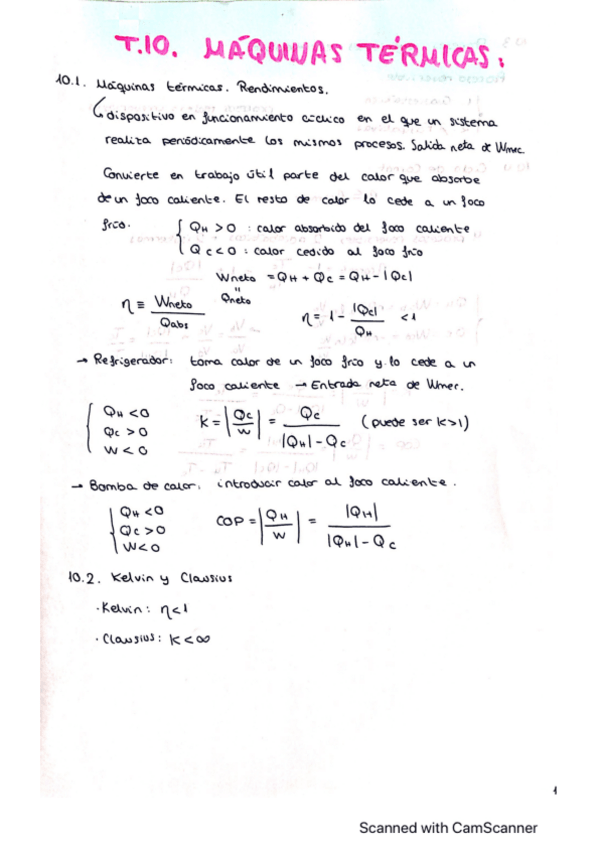 T.10. MÁQUINAS TÉRMICAS.
10.1. Máquinas térmicas. Rendimientos.
dispositivo en funcionamiento cíclico en el que un sistema
realiza periódicamente los mismos procesos. Salida neta de Wmec.
Convierte en trabajo útil parte del calor que absorbe
de un foco caliente. El resto de calor lo cede a un foco
frío.
QH > 0 : calor absorbido del foco caliente
Qc < 0 : calor cedido al foco frío
Wneto = QH + Qc = QH - |Qc|
"
Qneto
η ≡ Wneto / Qabs
η = 1 - |Qc| / QH < 1
→ Refrigerador: toma calor de un foco frío y lo cede a un
foco caliente → Entrada neta de Wmec.
QH < 0
Qc > 0
W < 0
k = |Qc / W| = Qc / |QH| - Qc (puede ser k>1)
→ Bomba de calor: introducir calor al foco caliente.
QH < 0
Qc > 0
W < 0
COP = |QH / W| = |QH| / |QH| - Qc
10.2. Kelvin y Clausius
· Kelvin: η < 1
· Clausius: k < ∞
1
Scanned with CamScanner